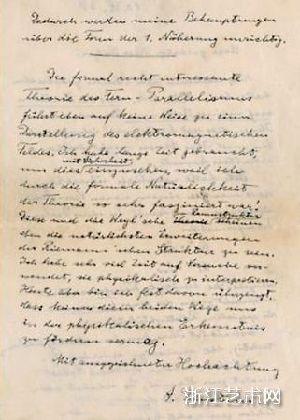 Dadurch werden meine Behauptungen
über die Form der 1. Näherung unrichtig.
Die formal recht interessante
Theorie des Fern-Parallelismus
führt eben auf keine Weise zu einer
Darstellung des elektromagnetischen
Feldes. Ich habe lange Zeit gebraucht,
mit Sicherheit
um dies einzusehen, weil ich
durch die formale Natürlichkeit
der Theorie so sehr fasziniert war.
Diese und die Weyl'sche Theorie
eben die natürlichsten Erweiterungen
der Riemann'schen Struktur zu sein.
Ich habe sehr viel Zeit auf Versuche ver-
wendet, sie physikalisch zu interpretieren.
Heute aber bin ich fest davon überzeugt,
dass keiner dieser beiden Wege uns
in der physikalischen Erkenntnis
zu fördern vermag.
Mit ausgezeichneter Hochachtung
A. Einstein.
浙江艺术网